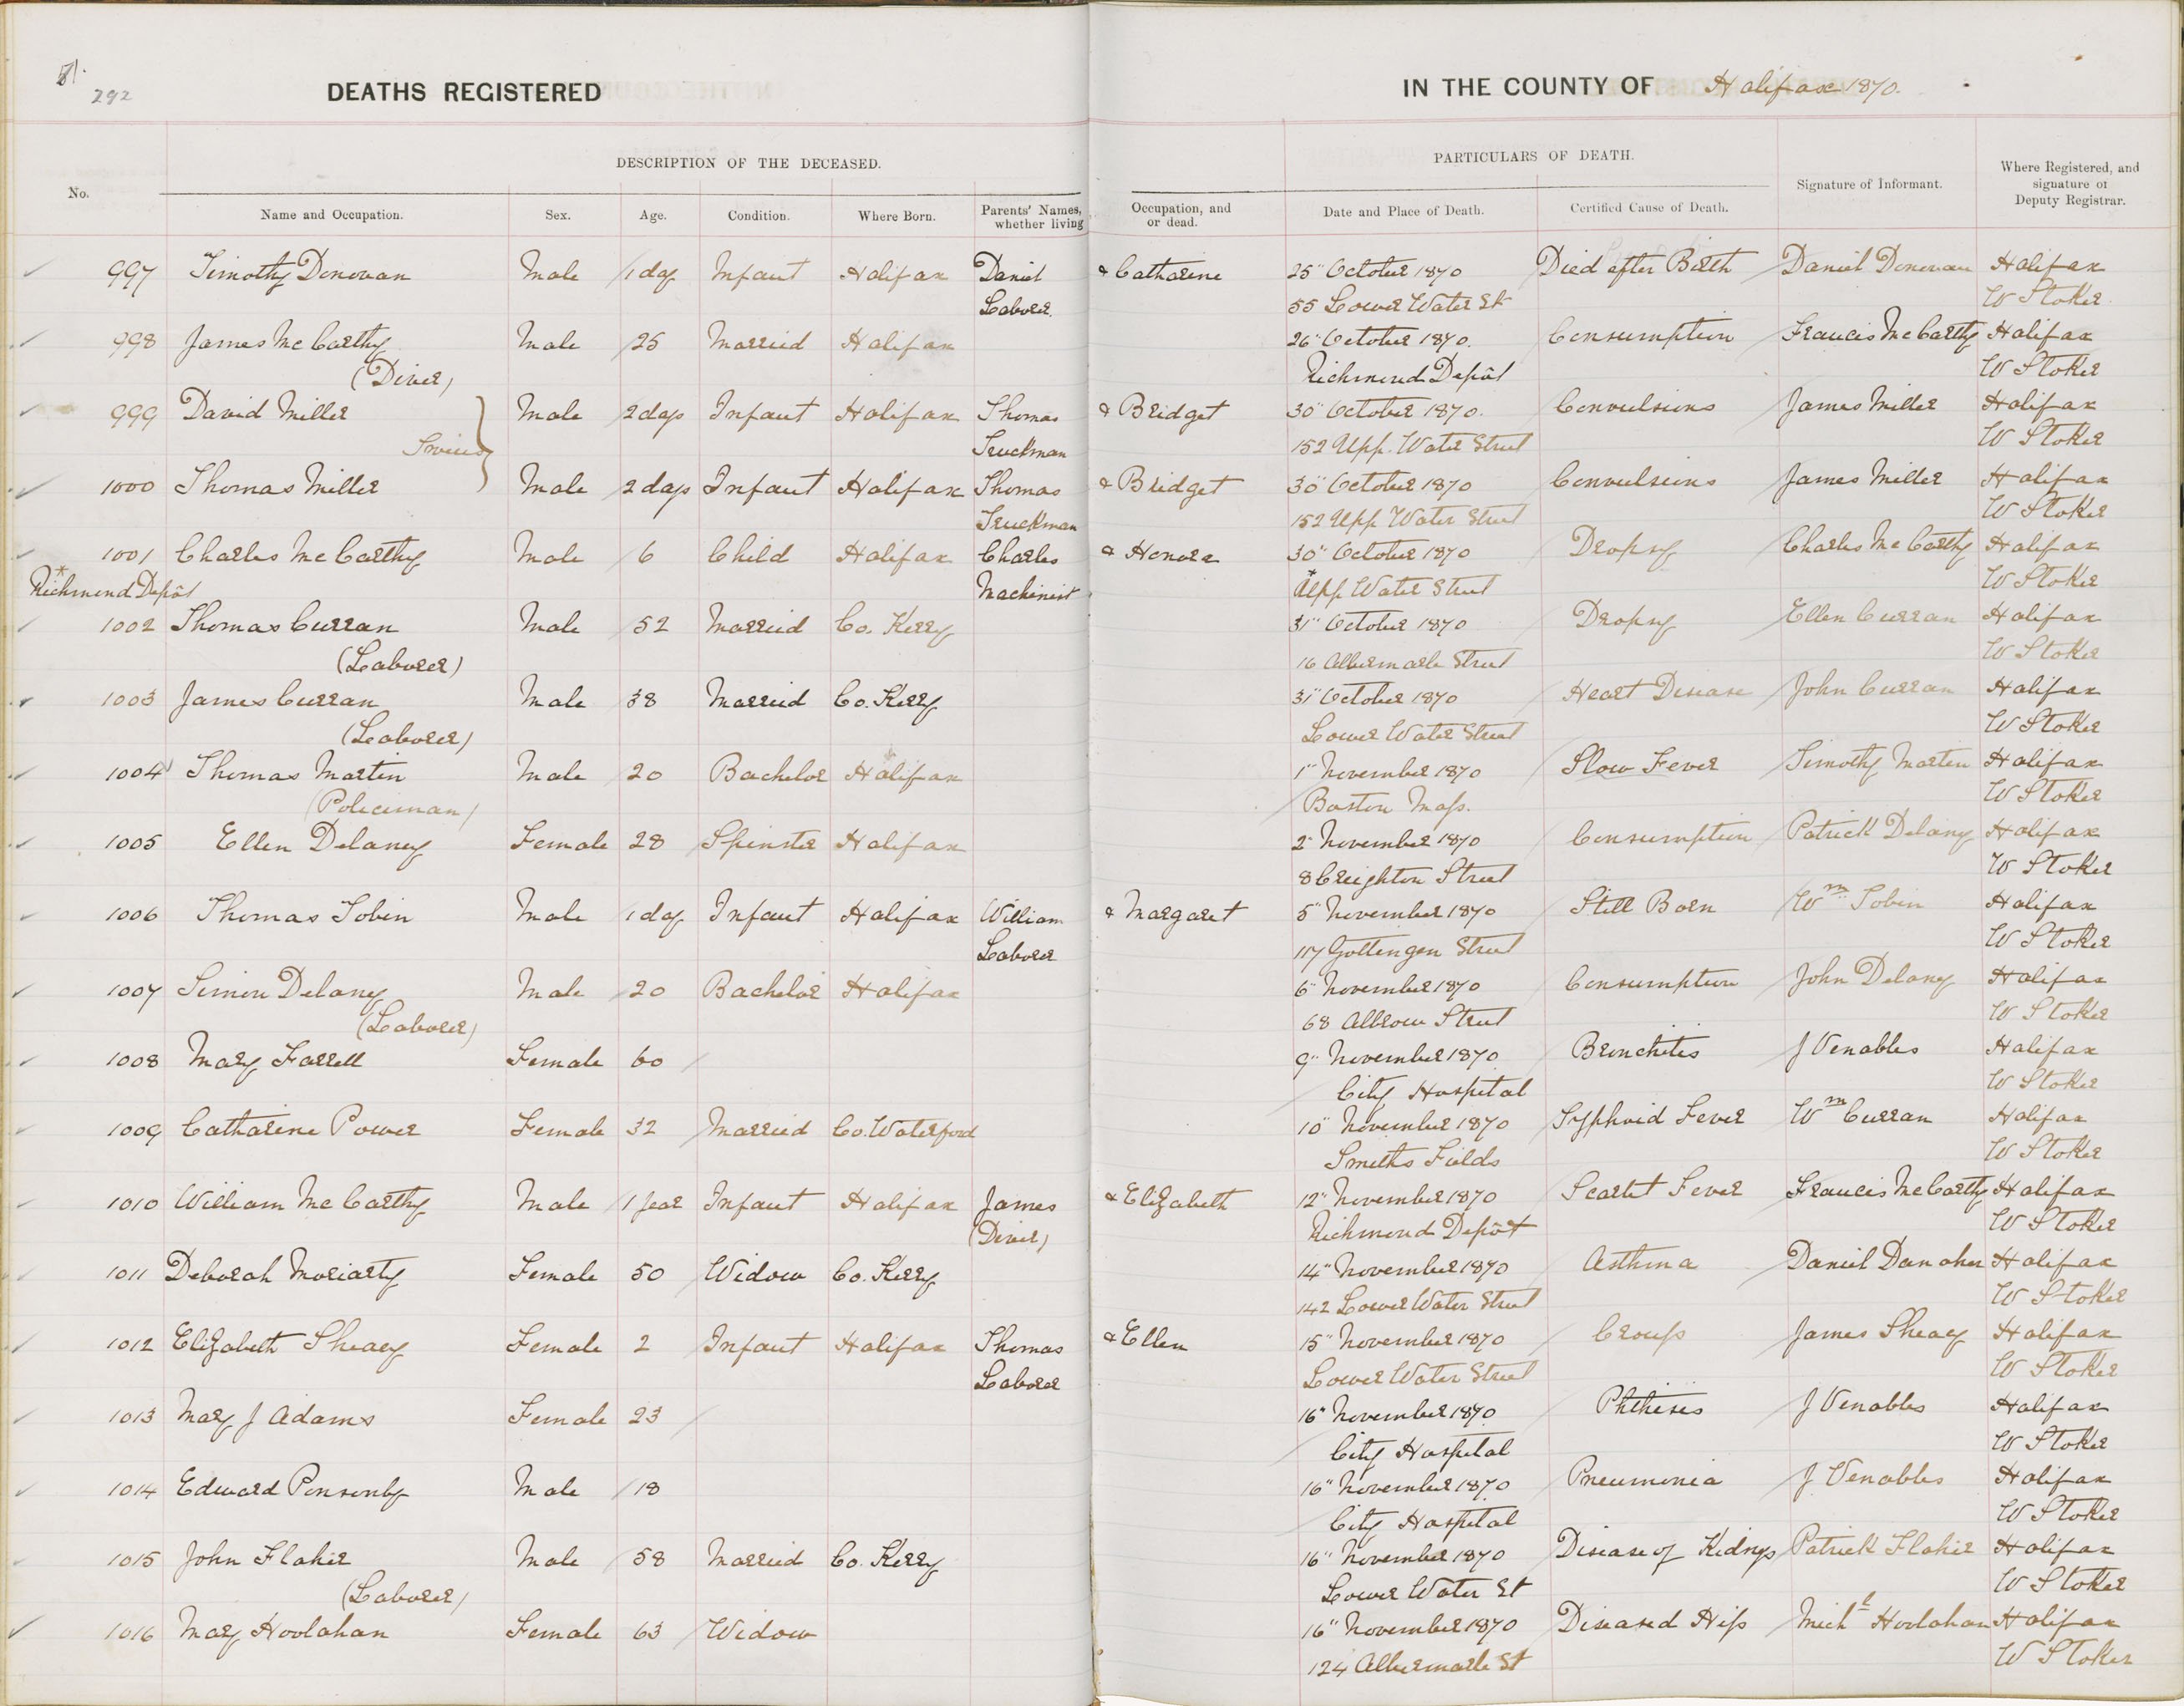 51.
292
DEATHS REGISTERED IN THE COUNTY OF Halifax 1870.
DESCRIPTION OF THE DECEASED. PARTICULARS OF DEATH.
No. Name and Occupation. Sex. Age. Condition. Where Born. Parents' Names, Occupation, and Date and Place of Death. Certified Cause of Death. Signature of Informant. Where Registered, and
whether living or dead. signature of
Deputy Registrar.
997 Timothy Donovan Male 1 day Infant Halifax Daniel & Catharine 25" October 1870 Died after Birth Daniel Donovan Halifax
Laborer. 55 Lower Water St W Stoker
998 James McCarthy Male 25 Married Halifax 26" October 1870. Consumption Francis McCarthy Halifax
(Diver) Richmond Depôt W Stoker
999 David Miller Male 2 days Infant Halifax Thomas & Bridget 30" October 1870. Convulsions James Miller Halifax
Twins Truckman 152 Upp. Water Street W Stoker
1000 Thomas Miller Male 2 days Infant Halifax Thomas & Bridget 30" October 1870 Convulsions James Miller Halifax
Truckman 152 Upp Water Street W Stoker
1001 Charles McCarthy Male 6 Child Halifax Charles & Honora 30" October 1870 Dropsy Charles McCarthy Halifax
* Richmond Depôt Machinist * Upp Water Street W Stoker
1002 Thomas Curran Male 52 Married Co. Kerry 31" October 1870 Dropsy Ellen Curran Halifax
(Laborer) 16 Albermarle Street W Stoker
1003 James Curran Male 38 Married Co. Kerry 31" October 1870 Heart Disease John Curran Halifax
(Laborer) Lower Water Street W Stoker
1004 Thomas Martin Male 20 Bachelor Halifax 1" November 1870 Slow Fever Timothy Martin Halifax
(Policeman) Boston Mass. W Stoker
1005 Ellen Delaney Female 28 Spinster Halifax 2" November 1870 Consumption Patrick Delany Halifax
8 Creighton Street W Stoker
1006 Thomas Tobin Male 1 day Infant Halifax William & Margaret 5" November 1870 Still Born Wm Tobin Halifax
Laborer 117 Gottengen Street W Stoker
1007 Simon Delany Male 20 Bachelor Halifax 6" November 1870 Consumption John Delany Halifax
(Laborer) 68 Albrow Street W Stoker
1008 Mary Farrell Female 60 9" November 1870 Bronchitis J Venables Halifax
City Hospital W Stoker
1009 Catharine Power Female 32 Married Co. Waterford 10" November 1870 Typhoid Fever Wm Curran Halifax
Smiths Fields W Stoker
1010 William McCarthy Male 1 year Infant Halifax James & Elizabeth 12" November 1870 Scarlet Fever Francis McCarthy Halifax
(Diver) Richmond Depôt W Stoker
1011 Deborah Moriarty Female 50 Widow Co. Kerry 14" November 1870 Asthma Daniel Danaher Halifax
142 Lower Water Street W Stoker
1012 Elizabeth Sheary Female 2 Infant Halifax Thomas & Ellen 15" November 1870 Croup James Sheary Halifax
Laborer Lower Water Street W Stoker
1013 Mary J Adams Female 23 16" November 1870 Phthisis J Venables Halifax
City Hospital W Stoker
1014 Edward Ponsonby Male 18 16" November 1870 Pneumonia J Venables Halifax
City Hospital W Stoker
1015 John Flaher Male 58 Married Co. Kerry 16" November 1870 Disease of Kidnys Patrick Flaher Halifax
(Laborer) Lower Water St W Stoker
1016 Mary Hoolahan Female 63 Widow 16" November 1870 Diseased Hip Michl Hoolahan Halifax
124 Albermarle St W Stoker